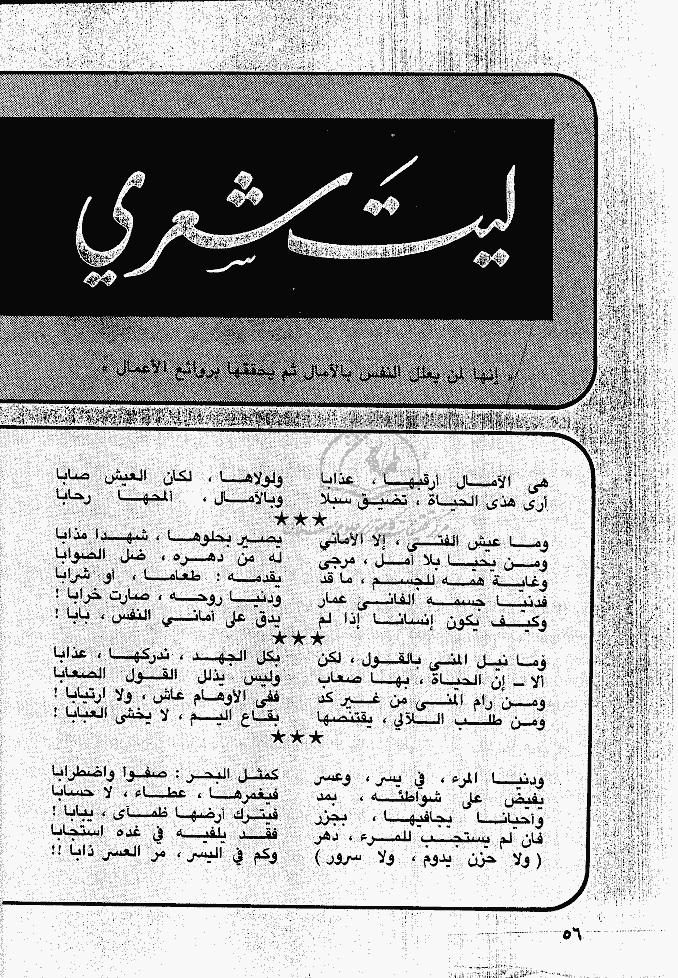 ليت شعري
« إنها لمن يعلل النفس بالآمال ثم يحققها بروائع الأعمال »
هى الآمــال أرقبهــا ، عذابا ولولاهــا ، لكان العيش صابا
أرى هذى الحيــاة ، تضيــق سبلا وبالآمــال ، ألمحهــا رحابا
★★★
ومــا عيش الفتــى ، إلا الأماني يصــير بحلوهــا ، شهــدا مذابا
ومــن يحيــا بلا أمــل ، مرجى له من دهــره ، ضل الصوابا
وغايــة همــه للجســم ، ما قد يقدمــه : طعامــا ، أو شرابا
فدنيــا جسمــه الفانــى عمار ودنيــا روحــه ، صارت خرابا !
وكيــف يكون إنسانــا إذا لم يدق على أمانــي النفس ، بابا !
★★★
وما نيــل المنــى بالقــول ، لكن بكل الجهــد ، ندركهــا ، عذابا
ألا ــ إن الحيــاة ، بهــا صعاب وليس يذلل القــول الصعابا
ومــن رام المنــى من غــير كد ففى الأوهــام عاش ، ولا ارتيابا !
ومــن طلــب الــلآلي ، يقتنصها بقــاع اليــم ، لا يخشى العبابا !
★★★
ودنيــا المرء ، في يسر ، وعسر كمثــل البحــر : صفــوا واضطرابا
يفيــض على شواطئــه ، بمد فيغمرهــا ، عطــاء ، لا حسابا
وأحيانــا يجافيهــا ، بجزر فيتــرك أرضهــا ظمــأى ، يبابا !
فان لم يستجــب للمــرء ، دهر فقــد يلفيــه في غده استجابا
( ولا حزن يدوم ، ولا سرور ) وكم في اليسر ، مر العسر ذابا !!
٥٦